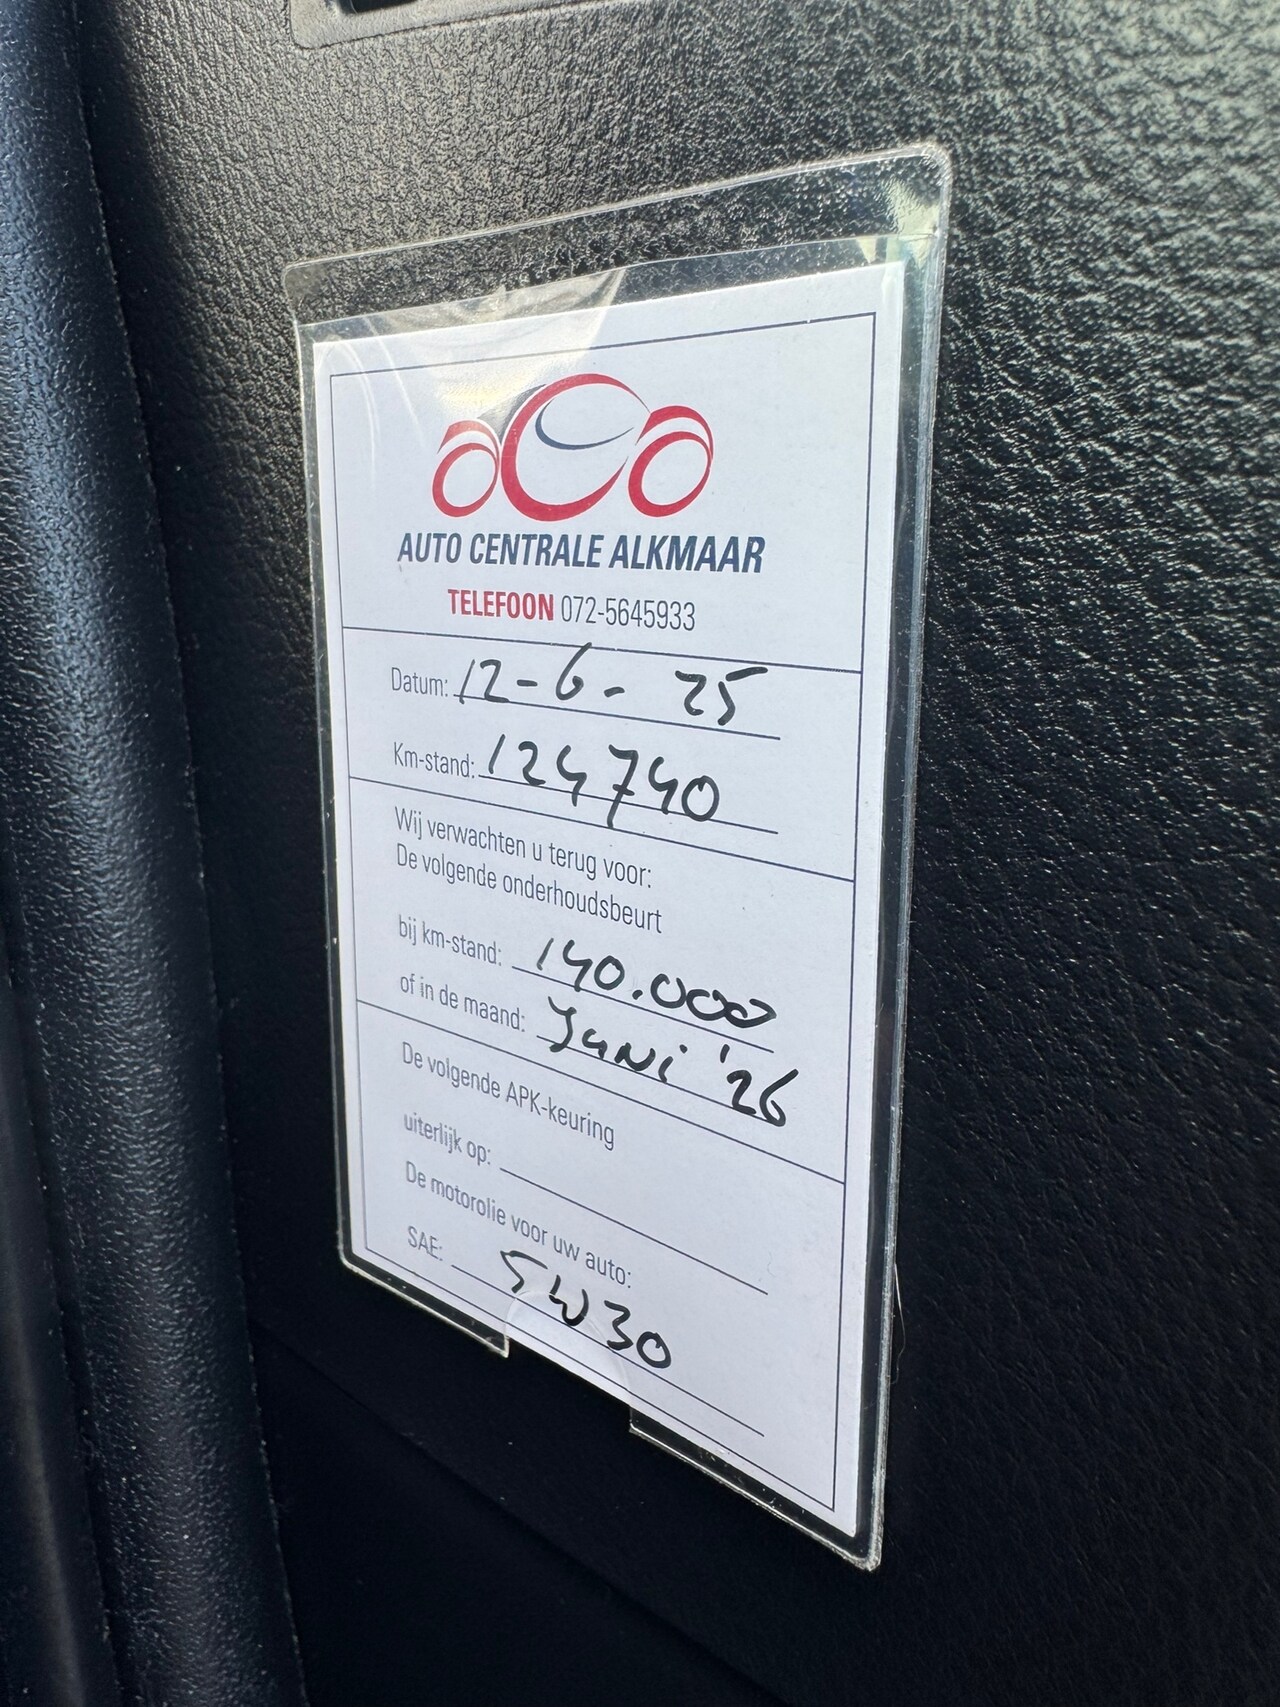 aca
AUTO CENTRALE ALKMAAR
TELEFOON 072-5645933
Datum: 12-6-25
Km-stand: 124740
Wij verwachten u terug voor:
De volgende onderhoudsbeurt
bij km-stand: 140.000
of in de maand: Juni '26
De volgende APK-keuring
uiterlijk op:
De motorolie voor uw auto:
SAE: 5W30